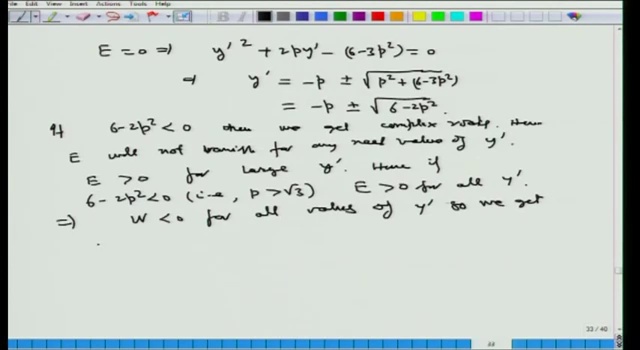 File Edit View Insert Actions Tools Help
E = 0 ⇒ y'² + 2py' - (6-3p²) = 0
⇒ y' = -p ± √p² + (6-3p²)
= -p ± √6-2p².
If 6-2p² < 0 then we get complex roots. Hence
E will not vanish for any real value of y'.
E > 0 for large y'. Hence if
6-2p² < 0 (i.e., p > √3) E > 0 for all y'.
⇒) W < 0 for all values of y' so we get
33 / 40
33